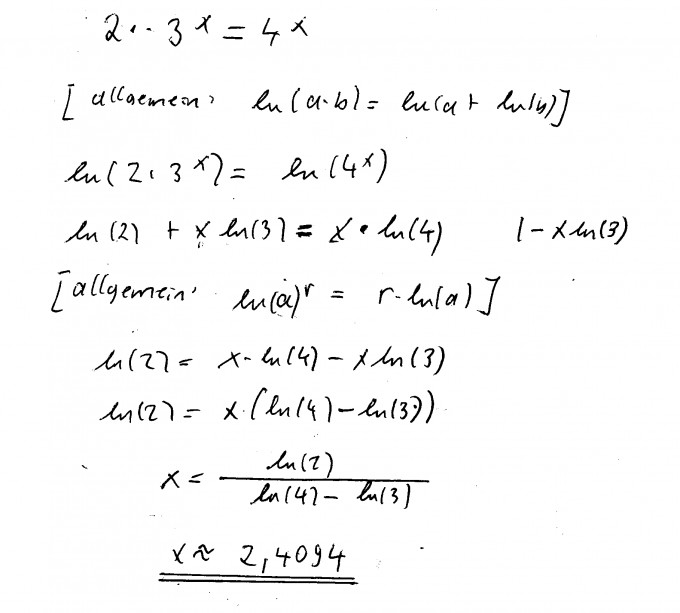 2 · · 3^x = 4^x
[allgemein, ln(a·b) = ln(a + ln(b)]
ln(2 · 3^x) = ln(4^x)
ln(2) + x ln(3) = x · ln(4) | - x ln(3)
[allgemein, ln(a)^r = r · ln(a)]
ln(2) = x · ln(4) - x ln(3)
ln(2) = x · (ln(4) - ln(3))
x = ln(2) / (ln(4) - ln(3))
x ≈ 2,4094